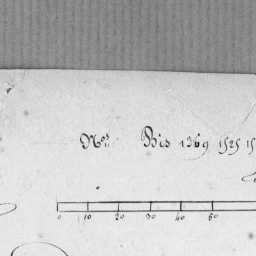 Nos Bis 1369 1525 15
0 10 20 30 40 60